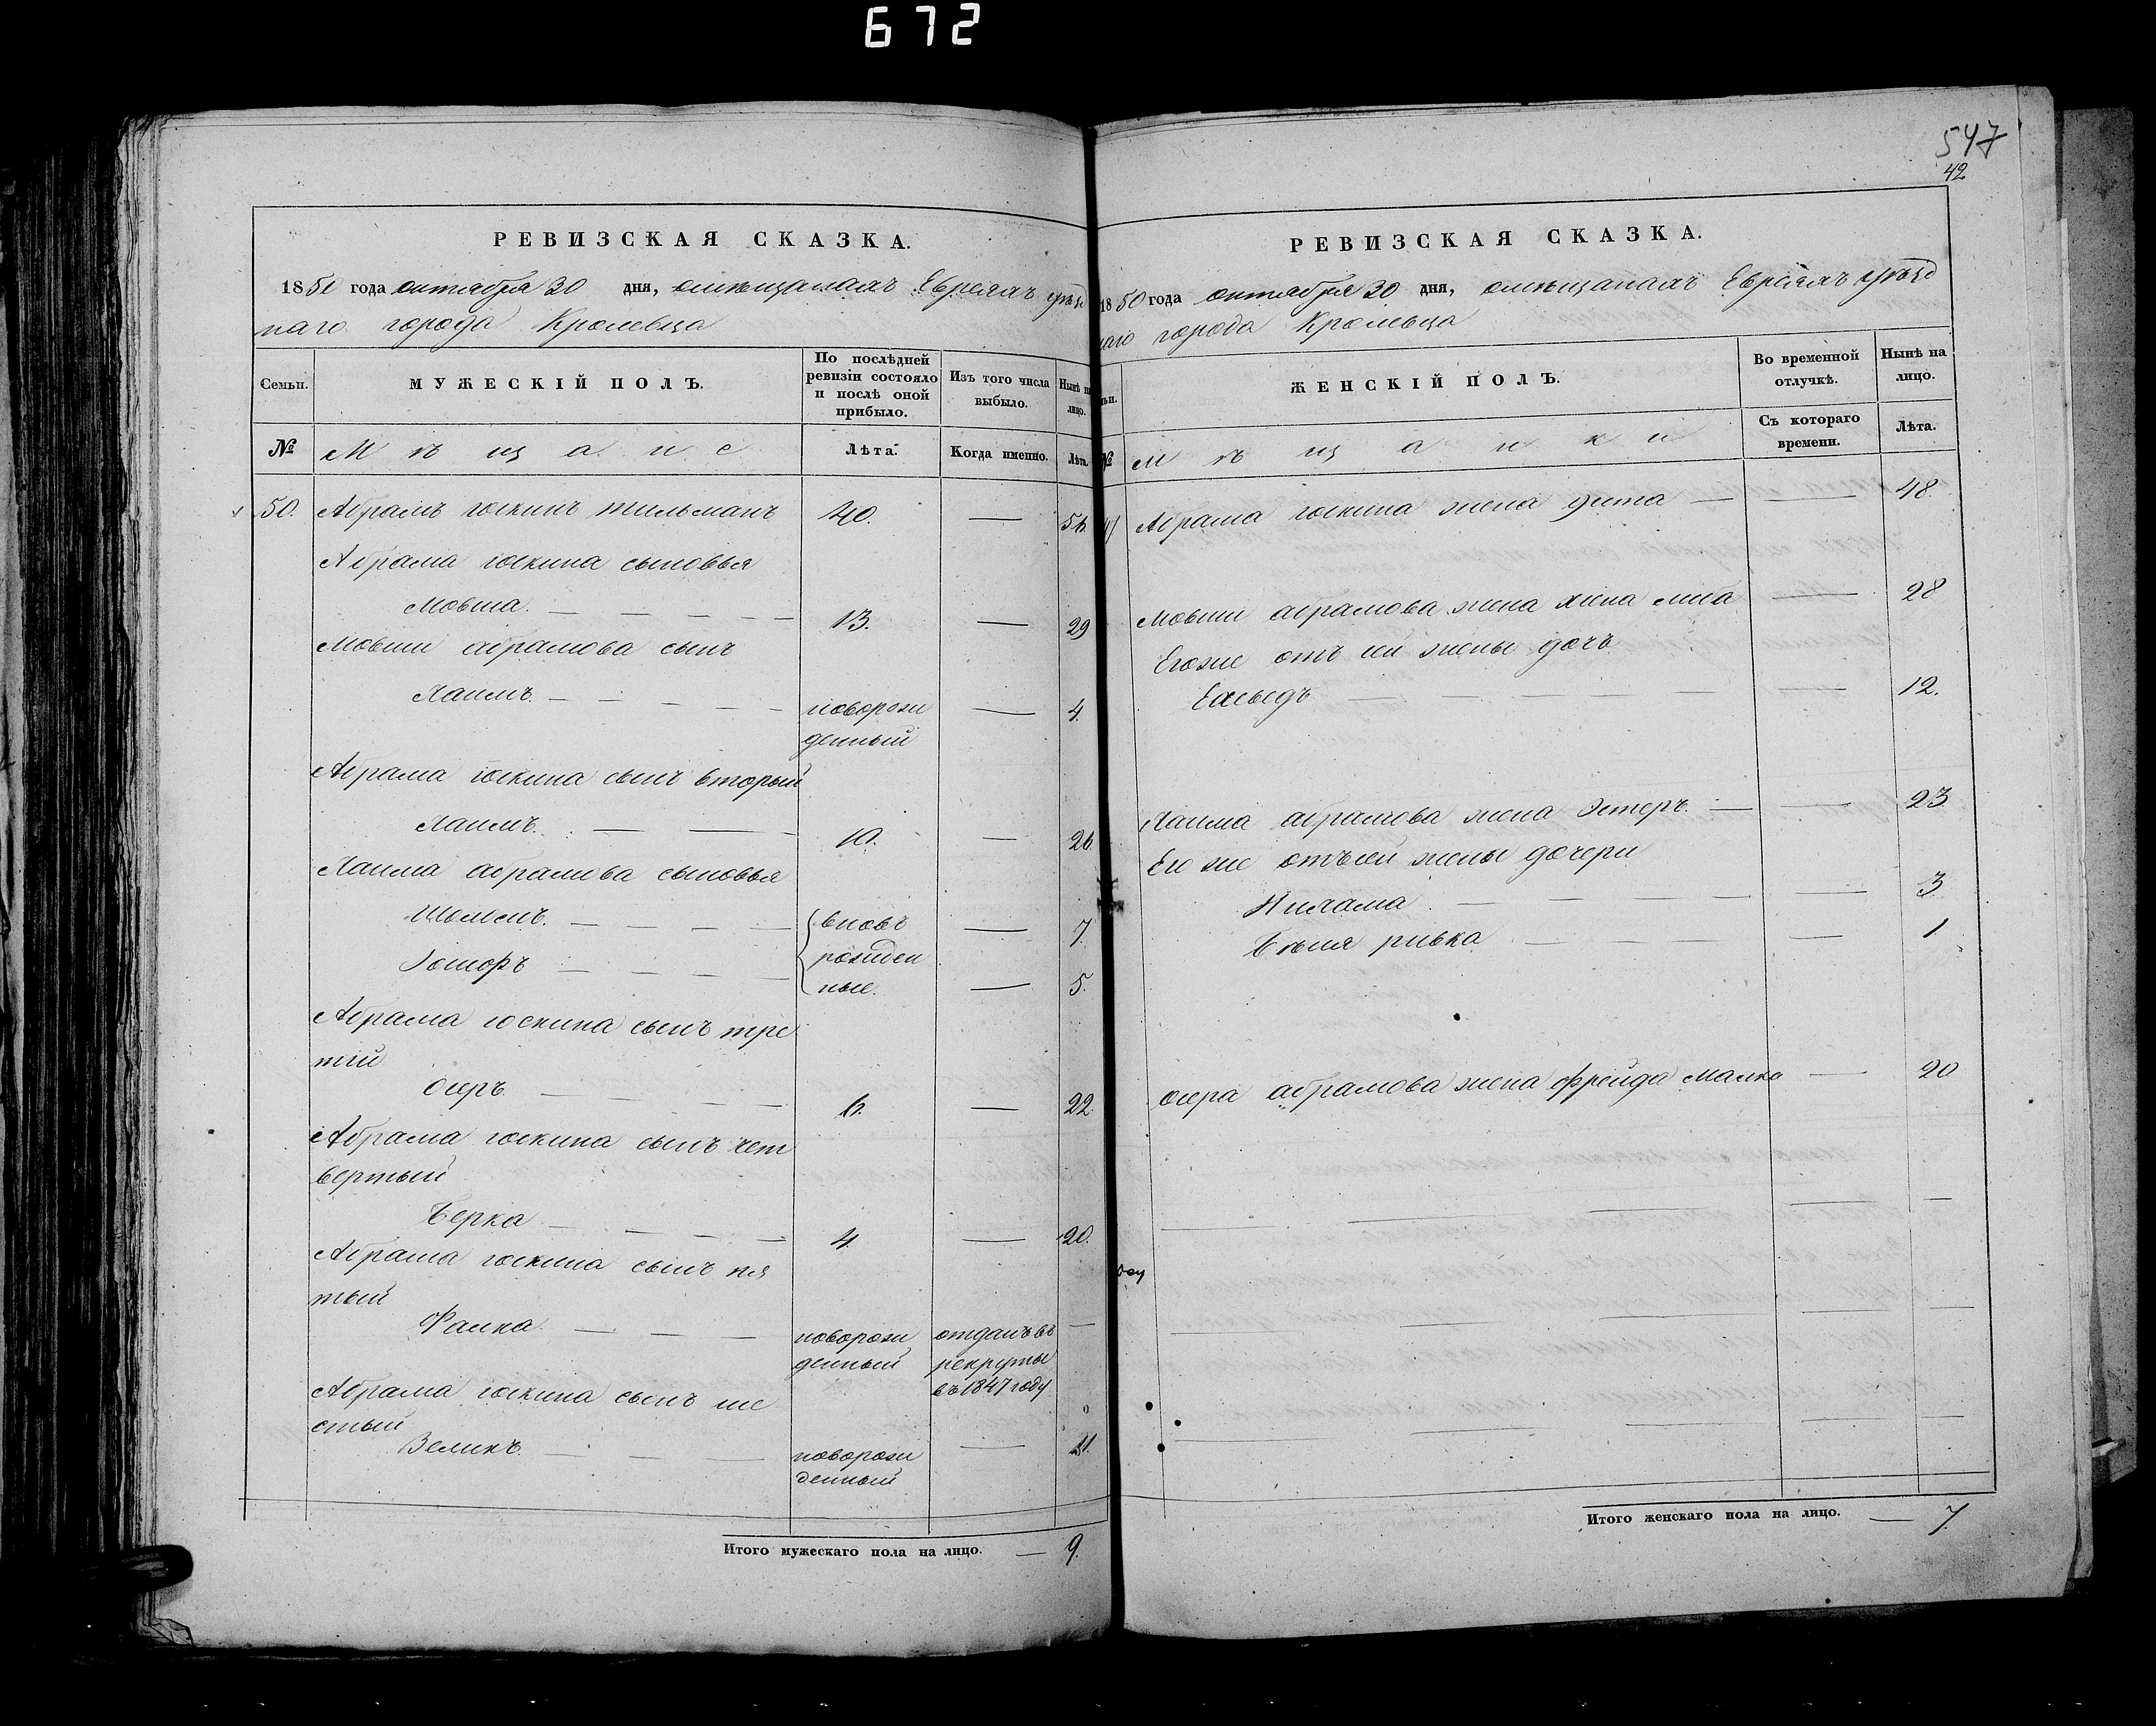 672
547
42
РЕВИЗСКАЯ СКАЗКА.
1850 года октября 30 дня, о мѣщанахъ Евреяхъ уѣзд
наго города Кролевца
Семьи.
МУЖЕСКІЙ ПОЛЪ.
По послѣдней ревизіи состояло и послѣ оной прибыло.
Изъ того числа выбыло.
Нынѣ на лицо.
№
Мѣщане
Лѣта.
Когда именно.
Лѣта.
50. Абрамъ іоскинъ тильманъ 40. — 56.
Абрама іоскина сыновья
Мовша. — 13. — 29
Мовши абрамова сынъ
Хаимъ. — новорож — 4.
денный
Абрама іоскина сынъ вторый
Хаимъ. — 10. — 26.
Хаима абрамова сыновья
Шоломъ. — вновь — 7.
рожден
Іошофъ — ные. — 5.
Абрама іоскина сынъ тре
тій
осеръ. — 6. — 22.
Абрама іоскина сынъ чет
вертый
Берка — 4. — 20.
Абрама іоскина сынъ пя
тый
Фалка. — новорож отданъ въ —
денный рекруты
въ 1847 году
Абрама іоскина сынъ ше
стый
Зеликъ. — новорож — 11.
денный
Итого мужескаго пола на лицо. — 9.
РЕВИЗСКАЯ СКАЗКА.
1850 года октября 30 дня, о мѣщанахъ Евреяхъ уѣзд
наго города Кролевца
ЖЕНСКІЙ ПОЛЪ.
Во временной отлучкѣ.
Нынѣ на лицо.
№
Мѣщанки
Съ котораго времени.
Лѣта.
Абрама іоскина жена гита — — 48.
Мовши абрамова жена хина — 28
Его же отъ сей жены дочь
— — 12.
Хаима абрамова жена Эстеръ. — — 23
Его же отъ сей жены дочери
Нихама. — — 3.
Бѣня ривка — — 1
осера абрамова жена фрейда малка — 20
Итого женскаго пола на лицо. — 7.